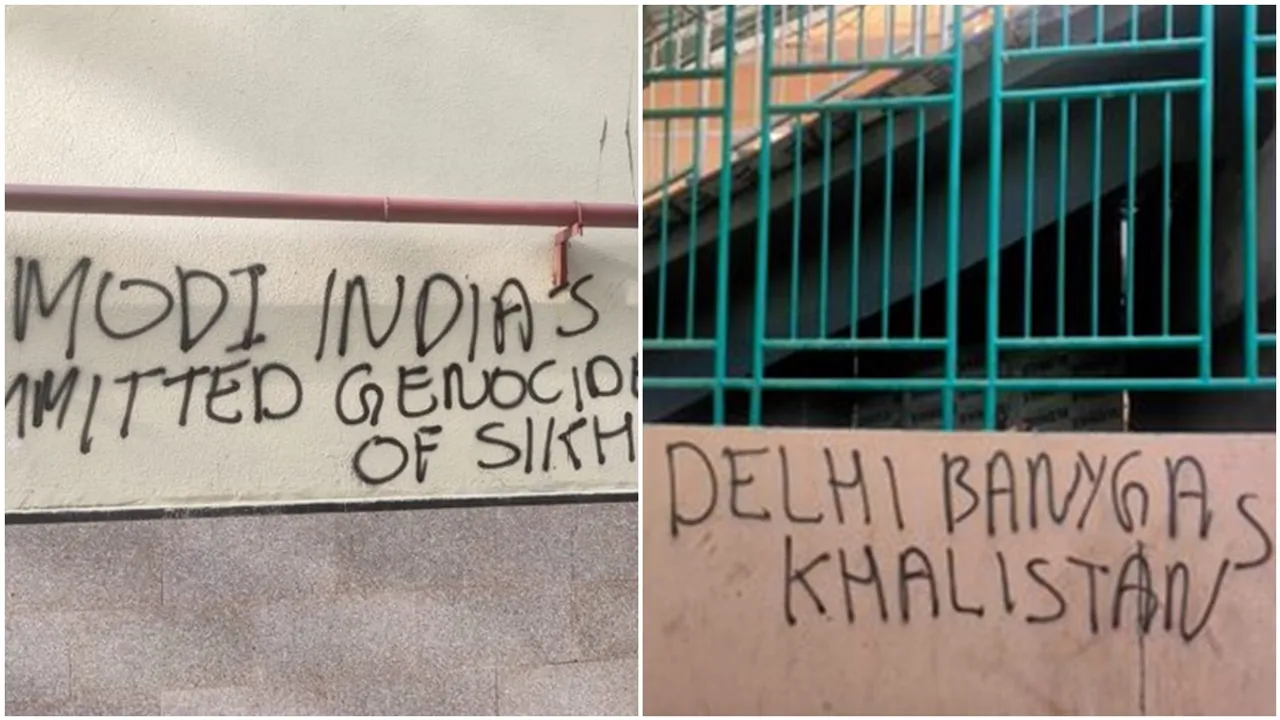 MODI INDIA'S
MMITTED GENOCIDE
OF SIKH
DELHI BANYGA S
KHALISTAN